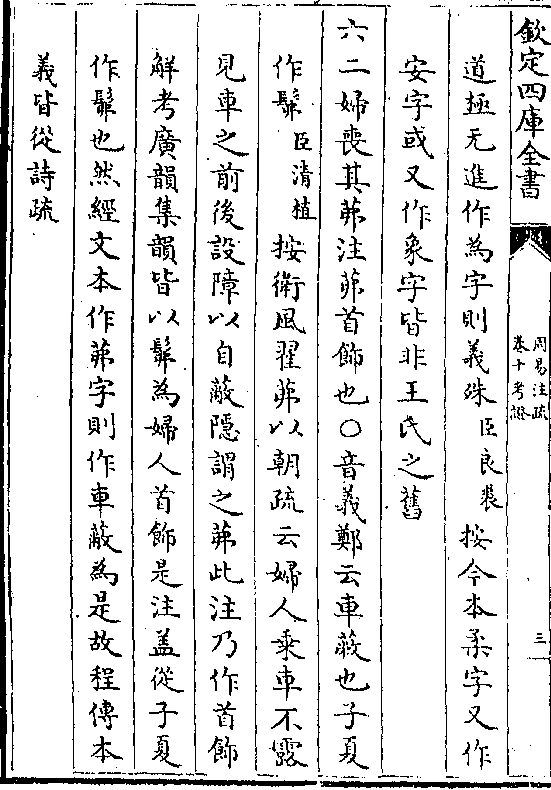 欽定四庫全書
周易注疏
卷十考證
三
道極无進作為字則義殊臣良裘按今本柔字又作
安字或又作象字皆非王氏之舊
六二婦喪其茀注茀首飾也〇音義鄭云車蔽也子夏
作髴臣清植按衛風翟茀以朝疏云婦人乘車不露
見車之前後設障以自蔽隱謂之茀此注乃作首飾
解考廣韻集韻皆以髴為婦人首飾是注蓋從子夏
作髴也然經文本作茀字則作車蔽為是故程傳本
義皆從詩疏